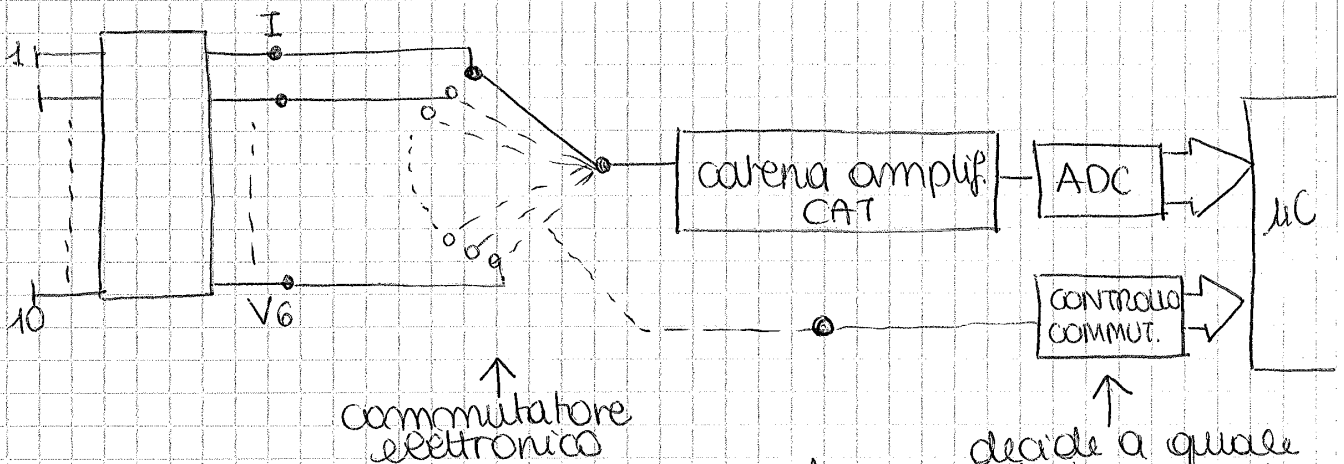 1
I
10
V6
catena amplif.
CAT
ADC
μC
CONTROLLO
COMMUT.
commutatore
elettronico
decide a quale